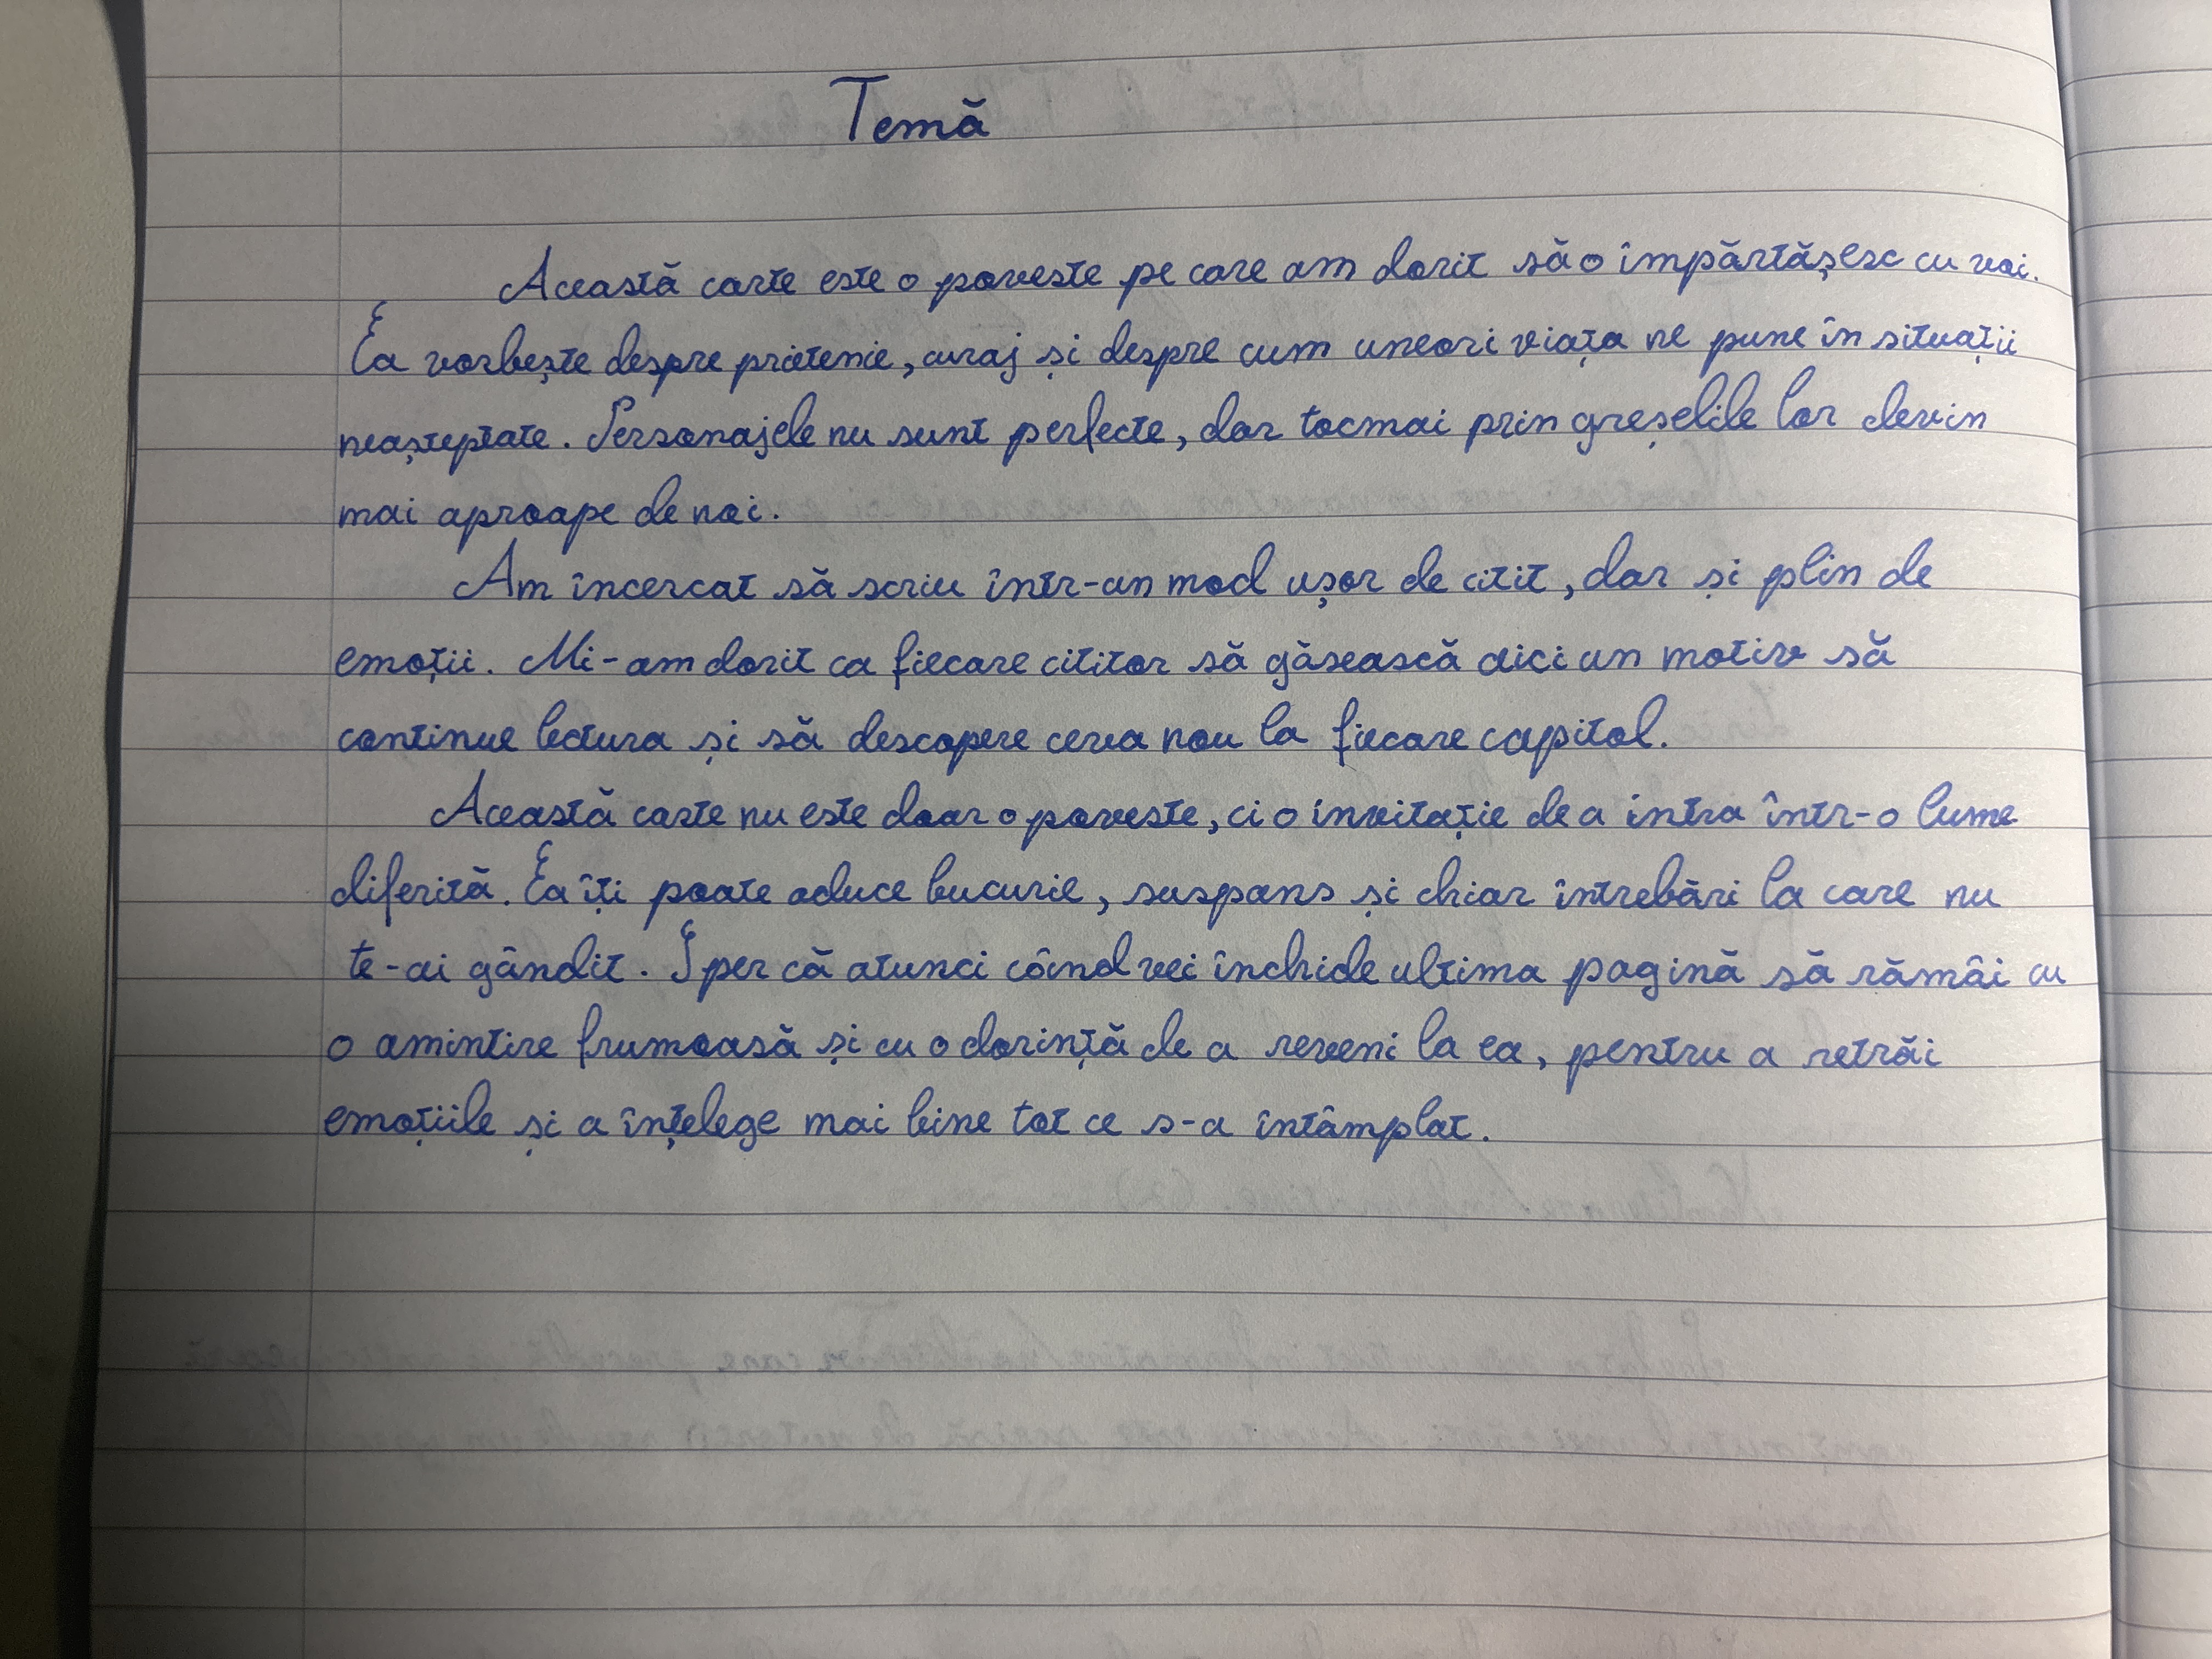 Temă
Această carte este o poveste pe care am dorit să o împărtășesc cu voi.
Ea vorbește despre prietenie, curaj și despre cum uneori viața ne pune în situații
neașteptate. Personajele nu sunt perfecte, dar tocmai prin greșelile lor devin
mai aproape de noi.
Am încercat să scriu într-un mod ușor de citit, dar și plin de
emoții. Mi-am dorit ca fiecare cititor să găsească aici un motiv să
continue lectura și să descopere ceva nou la fiecare capitol.
Această carte nu este doar o poveste, ci o invitație de a intra într-o lume
diferită. Ea îți poate aduce bucurie, suspans și chiar întrebări la care nu
te-ai gândit. Sper că atunci când vei închide ultima pagină să rămâi cu
o amintire frumoasă și cu o dorință de a reveni la ea, pentru a retrăi
emoțiile și a înțelege mai bine tot ce s-a întâmplat.